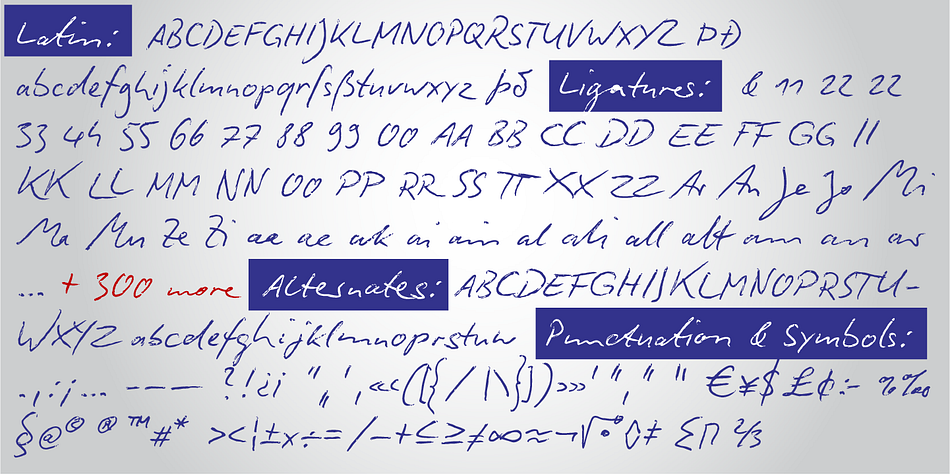 Latin: ABCDEFGHIJKLMNOPQRSTUVWXYZ ÞÐ
abcdefghijklmnopqrſsßtuvwxyz þð Ligatures: & 11 22 22
33 44 55 66 77 88 99 00 AA BB CC DD EE FF GG II
KK LL MM NN OO PP RR SS TT XX ZZ Ar An Je Jo Mi
Ma Mu Ze Zi aa ae ak ai ain al ali all alt am an ar
... + 300 more Alternates: ABCDEFGHIJKLMNOPRSTU-
WXYZ abcdefghijklmnoprstuw Punctuation & Symbols:
.,:;... --– — ?!¿¡ " „ ' ‚ «‹([{ / |\}])›» ' " ‚ " " " €¥$£¢:- %‰
§@©®™#* ><¦±×÷=/−+≤≥≠∞≈¬√°◊‡ ∑∏ ⅔